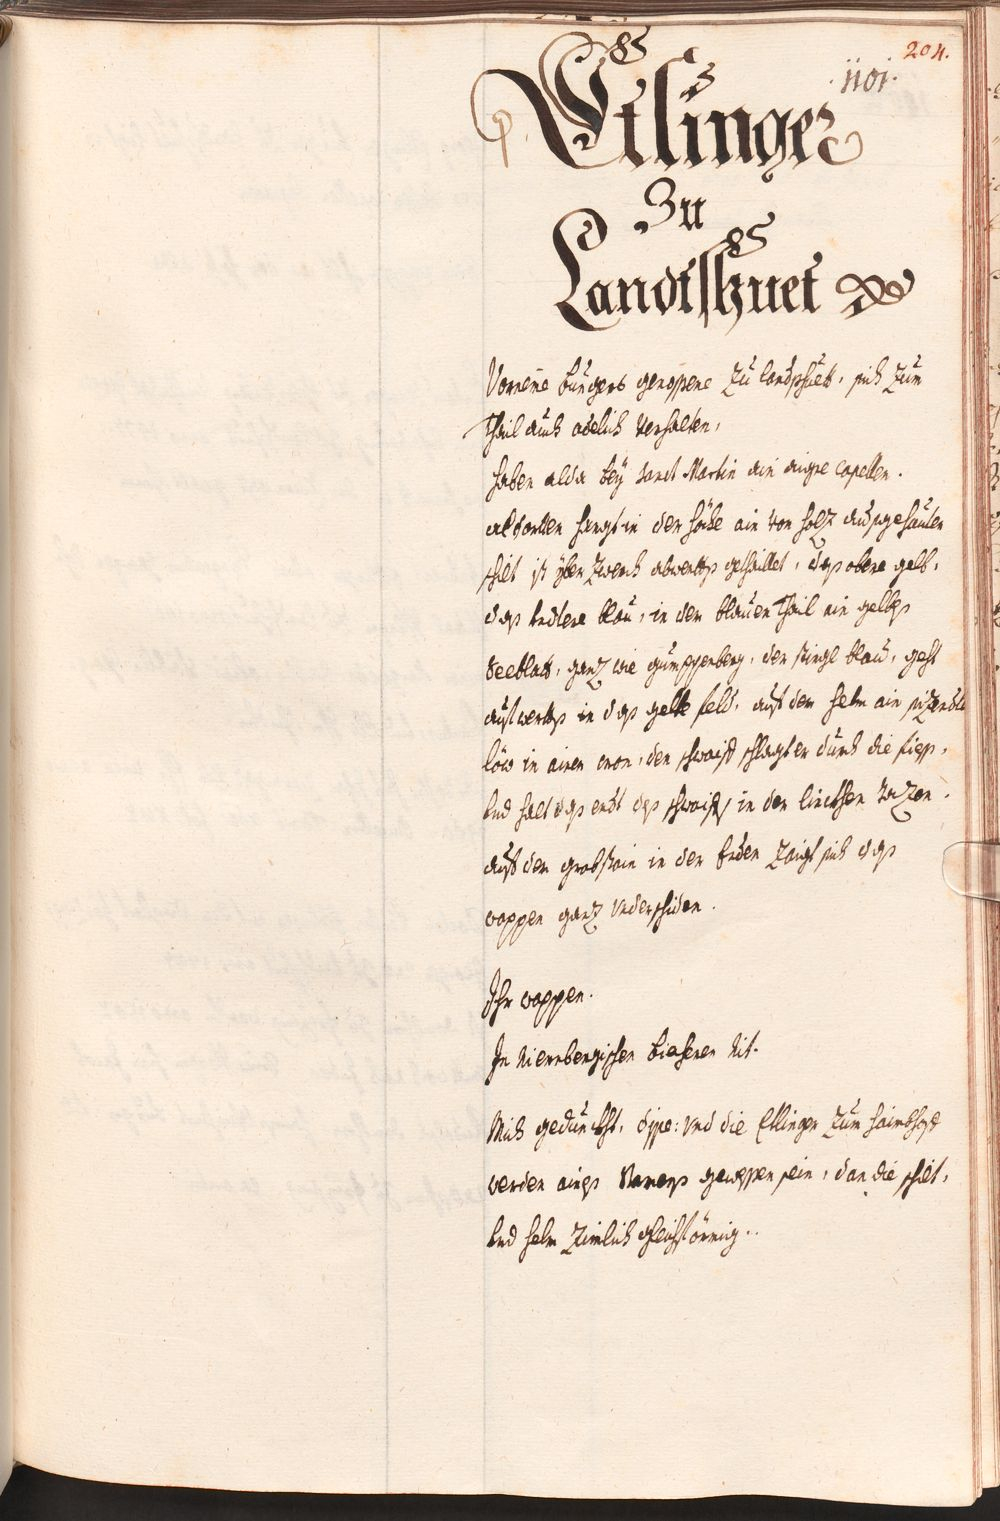 204.
.1101.
Etlinger
Zu
Landtshuet
Vorneme burgers genossene zu landtshuett, sich zum
thail auch adelich verhalten,
haben alda bey Sanct Martin ain aigne capellen.
aldorten hangt in der höche ain von holz ausgehauter
schilt ist yber zwerch abwerths gethaillet, das obere gelb,
das undere blau, in dem blauen thail ain gelbes
seeblatt, ganz wie gumppenberg, der stingl blau, geht
aufwerths in das gelbe feld, auf dem helm ain sizender
löw in ainer cron, den schwaif schlagt er durch die fiess,
und halt das endt des schwaifs in der linckhen Tazen.
auf dem grabstain in der Erden zaigt sich das
wappen ganz underschiden.
Ihr wappen.
In Niernbergischen biechern nit.
Mich gedunckht, dise: und die Etlinger zum haimbhof
werden aines Namens gewessen sein, dan die schilt,
und helm zimlich gleichförmig..